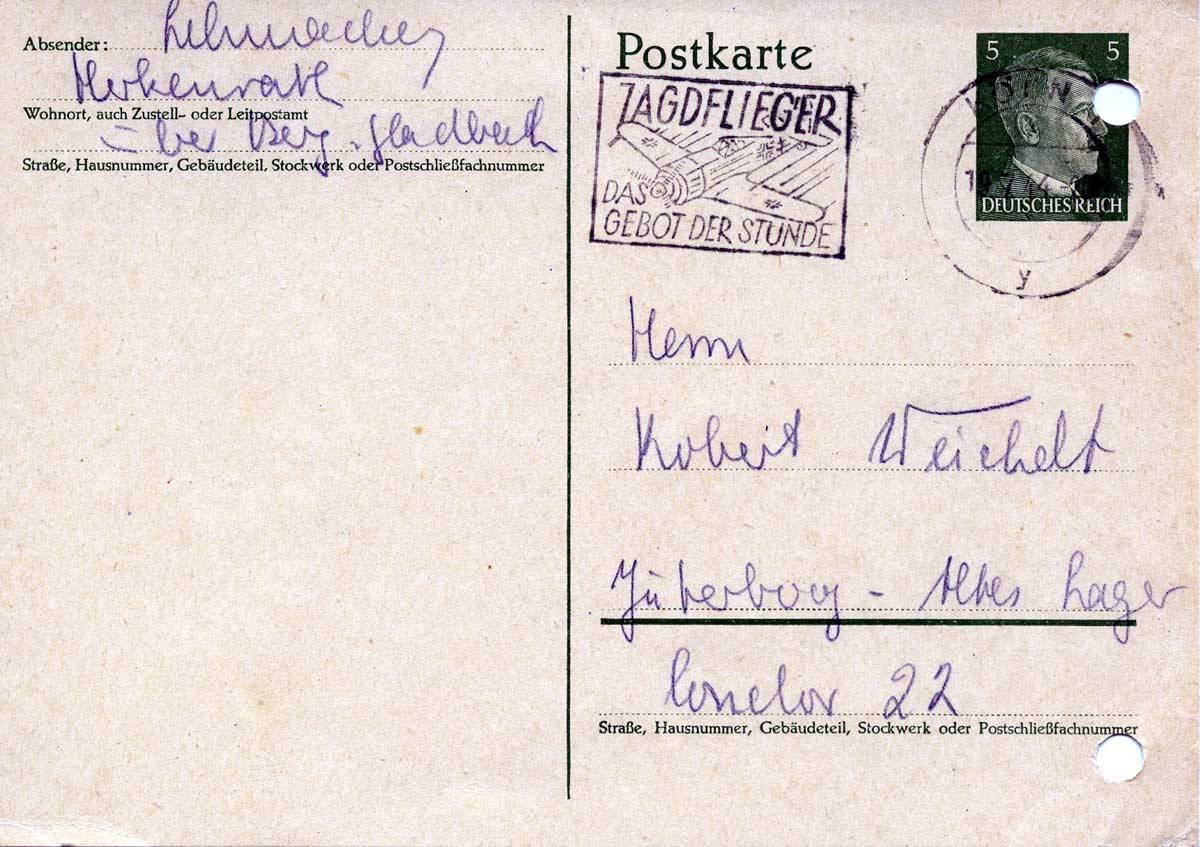 Absender:
Herkenrath
Wohnort, auch Zustell- oder Leitpostamt
- bei Berg. Gladbach
Straße, Hausnummer, Gebäudeteil, Stockwerk oder Postschließfachnummer
Postkarte
JAGDFLIEGER
DAS
GEBOT DER STUNDE
5 5
DEUTSCHES REICH
KÖLN
y
Herrn
Robert Weichelt
Jüterbog - Altes Lager
22
Straße, Hausnummer, Gebäudeteil, Stockwerk oder Postschließfachnummer